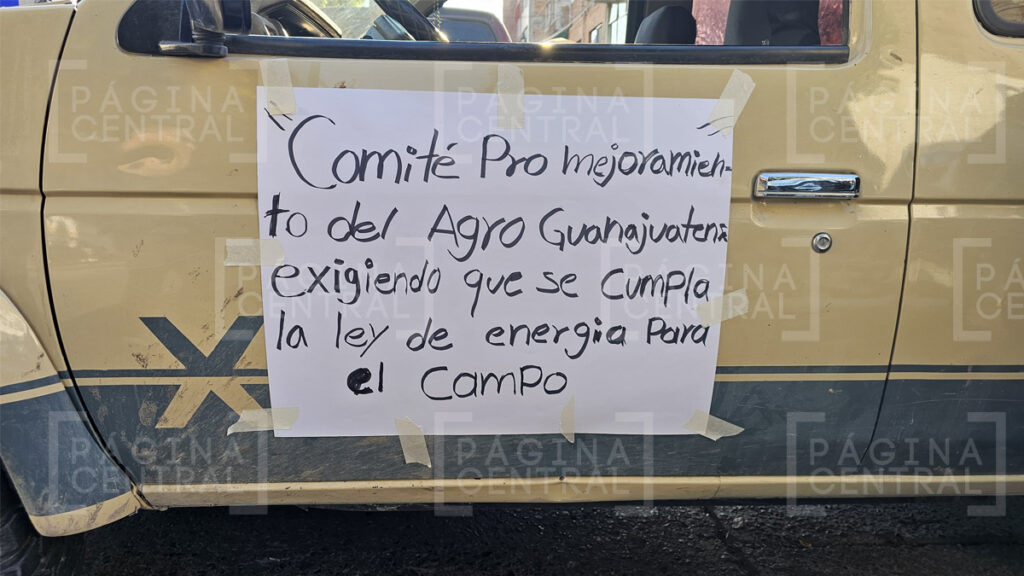 "Comité Pro mejoramien-
to del Agro Guanajuatense
exigiendo que se cumpla
la ley de energia Para
el Campo
PÁGINA
CENTRAL
PÁGINA
CENTRAL
PÁGINA
CENTRAL
PÁGINA
CENTRAL
PÁGINA
CENTRAL
PÁGINA
CENTRAL
PÁGINA
CENTRAL
PÁGINA
CENTRAL
PÁGINA
CENTRAL